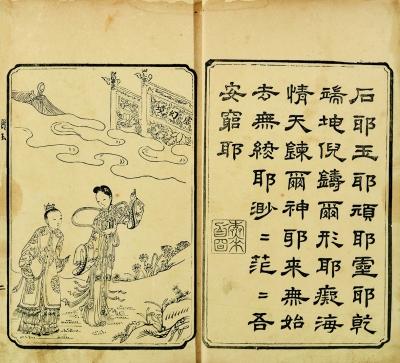 石耶玉耶頑耶靈耶乾
端坤倪鑄爾形耶癡海
情天鍊爾神耶來無始
去無終耶渺〻茫〻吾
安窮耶